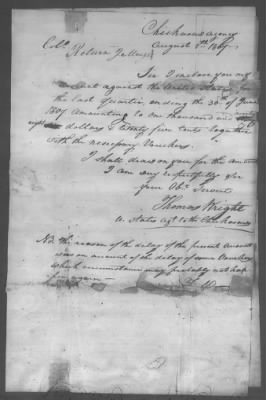 Chickasaw Agency
August 8th 1807.
Colo. Return J. Meigs
Sir I inclose you my
account against the United States for
the last quarter ending the 30th of June
1807 Amounting to one thousand and
eight dollars & twenty five cents together
with the necessary Vouchers.
I shall draw on you for the amount
I am very respectfully Sir
your Obt. Servant
Thomas Wright
U. States agt. to the Chickasaws
NB. the reason of the delay of the present Account
was on account of the delay of some Vouchers
which circumstance may probably not hap
pen again —